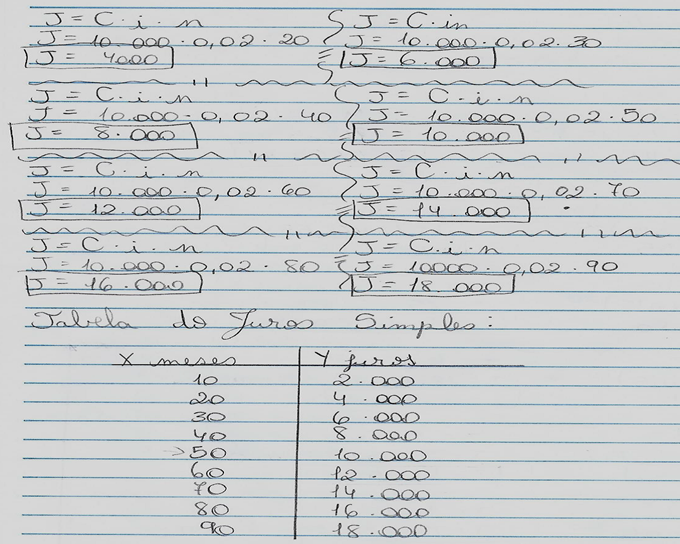 J = C · i · n
J = 10.000 · 0,02 · 20
J = 4000
J = C · in
J = 10.000 · 0,02 · 30
J = 6.000
J = C · i · n
J = 10.000 · 0,02 · 40
J = 8.000
J = C · i · n
J = 10.000 · 0,02 · 50
J = 10.000
J = C · i · n
J = 10.000 · 0,02 · 60
J = 12.000
J = C · i · n
J = 10.000 · 0,02 · 70
J = 14.000
J = C · i · n
J = 10.000 · 0,02 · 80
J = 16.000
J = C · i · n
J = 10000 · 0,02 · 90
J = 18.000
Tabela do Juros Simples:
X meses Y juros
10 2.000
20 4.000
30 6.000
40 8.000
50 10.000
60 12.000
70 14.000
80 16.000
90 18.000